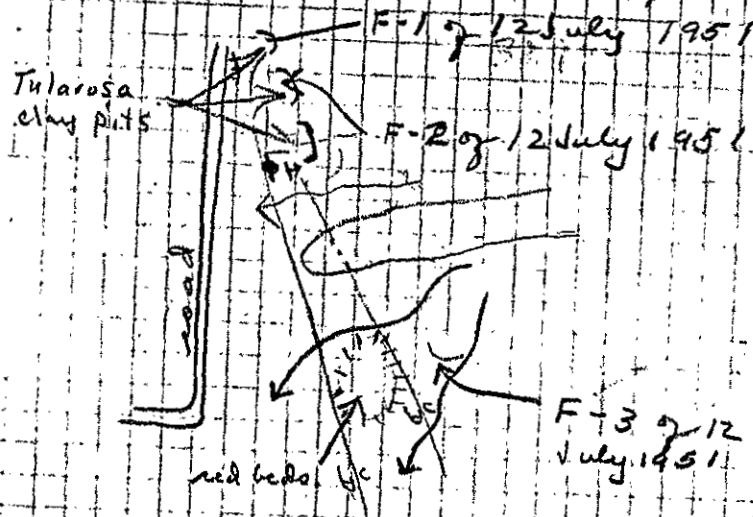 F-1 of 12 July 1951
Tularosa
clay pits
F-2 of 12 July 1951
road
F-3 of 12
July 1951
red beds